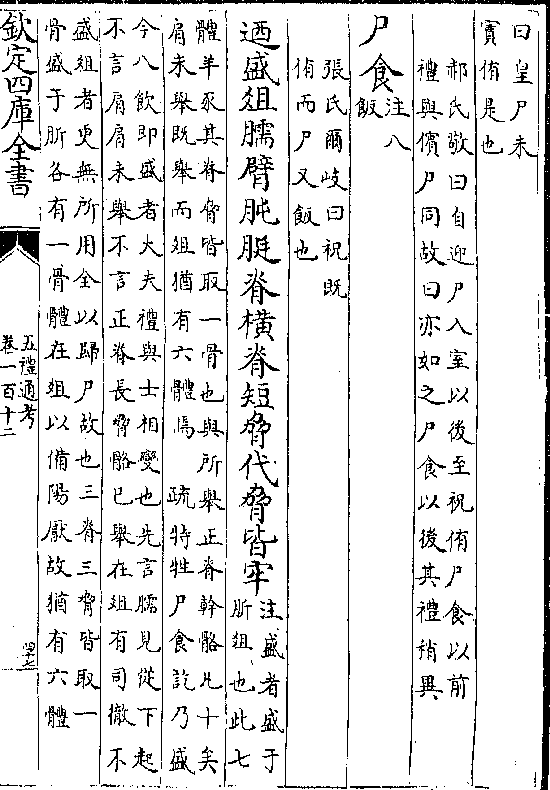 曰皇尸未
實侑是也
郝氏敬曰自迎尸入室以後至祝侑尸食以前
禮與儐尸同故曰亦如之尸食以後其禮稍異
尸食注八
飯
張氏爾岐曰祝既
侑而尸又飯也
迺盛俎臑臂肫脡脊橫脊短脅代脅皆牢注盛者盛于
肵俎也此七
體羊豕其脊脅皆取一骨也與所舉正脊幹骼凡十矣
肩未舉既舉而俎猶有六體焉 疏特牲尸食訖乃盛
今八飲即盛者大夫禮與士相變也先言臑見從下起
不言肩肩未舉不言正脊長脅骼已舉在俎有司徹不
盛俎者更無所用全以歸尸故也三脊三脅皆取一
骨盛于肵各有一骨體在俎以備陽厭故猶有六體
欽定四庫全書
五禮通考
卷一百十二